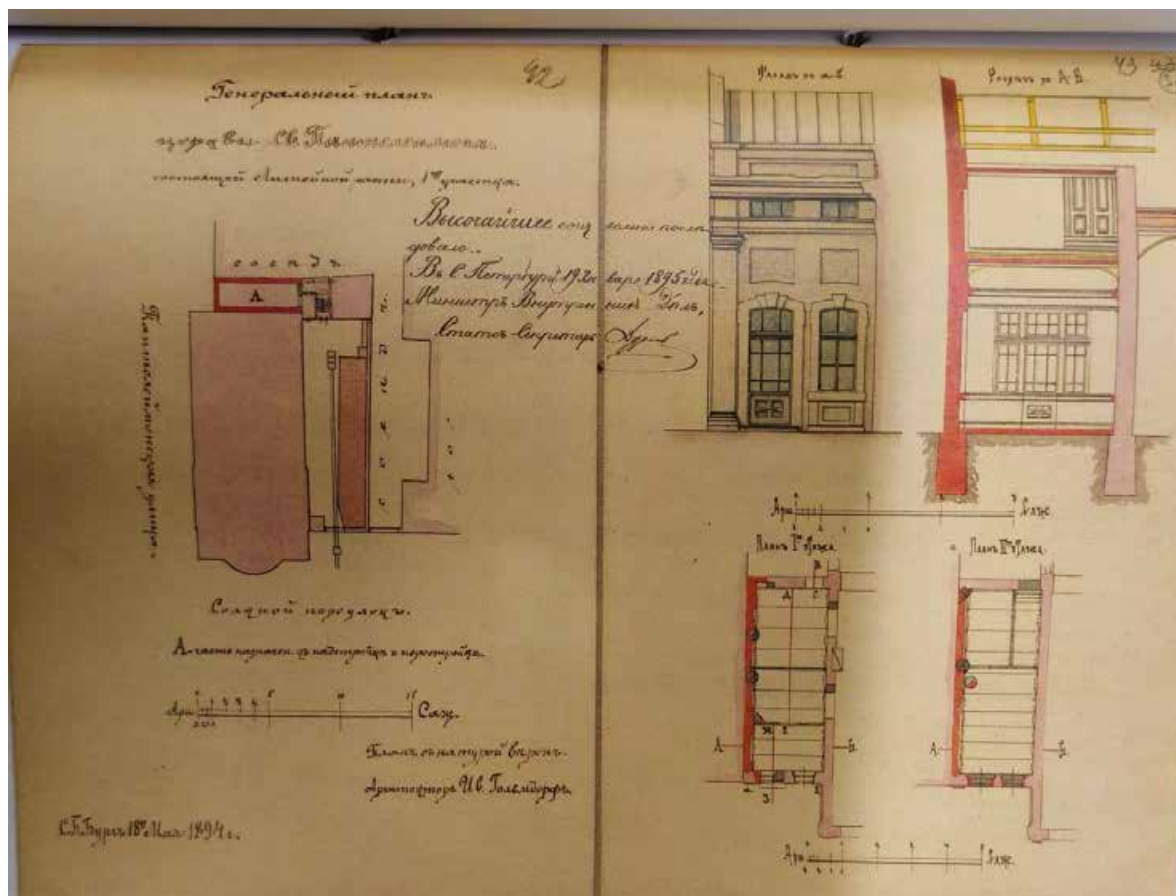 42
Генеральный планъ
церкви Св. Пантелеимона
состоящей Литейной части, 1го участка.
Высочайшее соизволеніе послѣ
довало.
Въ С. Петербургѣ 19 Января 1895 года.
Министръ Внутреннихъ Дѣлъ,
Статсъ-Секретарь
сосѣдъ
А
Пантелеймонская улица.
Соляной переулокъ.
А-часть назначен. къ надстройкѣ и перестройкѣ.
Арш.
Саж.
Планъ съ натурой вѣренъ.
Архитекторъ И в.
С.П.Бургъ 18го Мая 1894 г.
43
Фасадъ по а-в
Разрѣзъ по А-Б.
Арш.
Саж.
Планъ Iго этажа.
Планъ IIго этажа.
А
Б
А
Б
Арш
Саж.